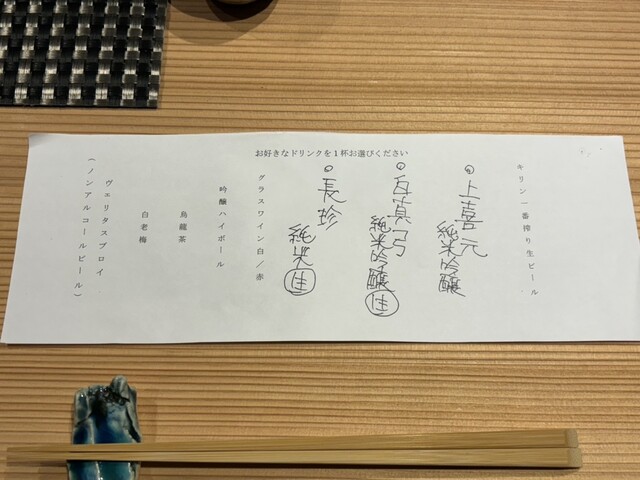 お好きなドリンクを１杯お選びください
キリン一番搾り生ビール
上喜元
純米吟醸
白真弓
純米吟醸 生
長珍
純米 生
グラスワイン白／赤
吟醸ハイボール
烏龍茶
白老梅
ヴェリタスブロイ
（ノンアルコールビール）